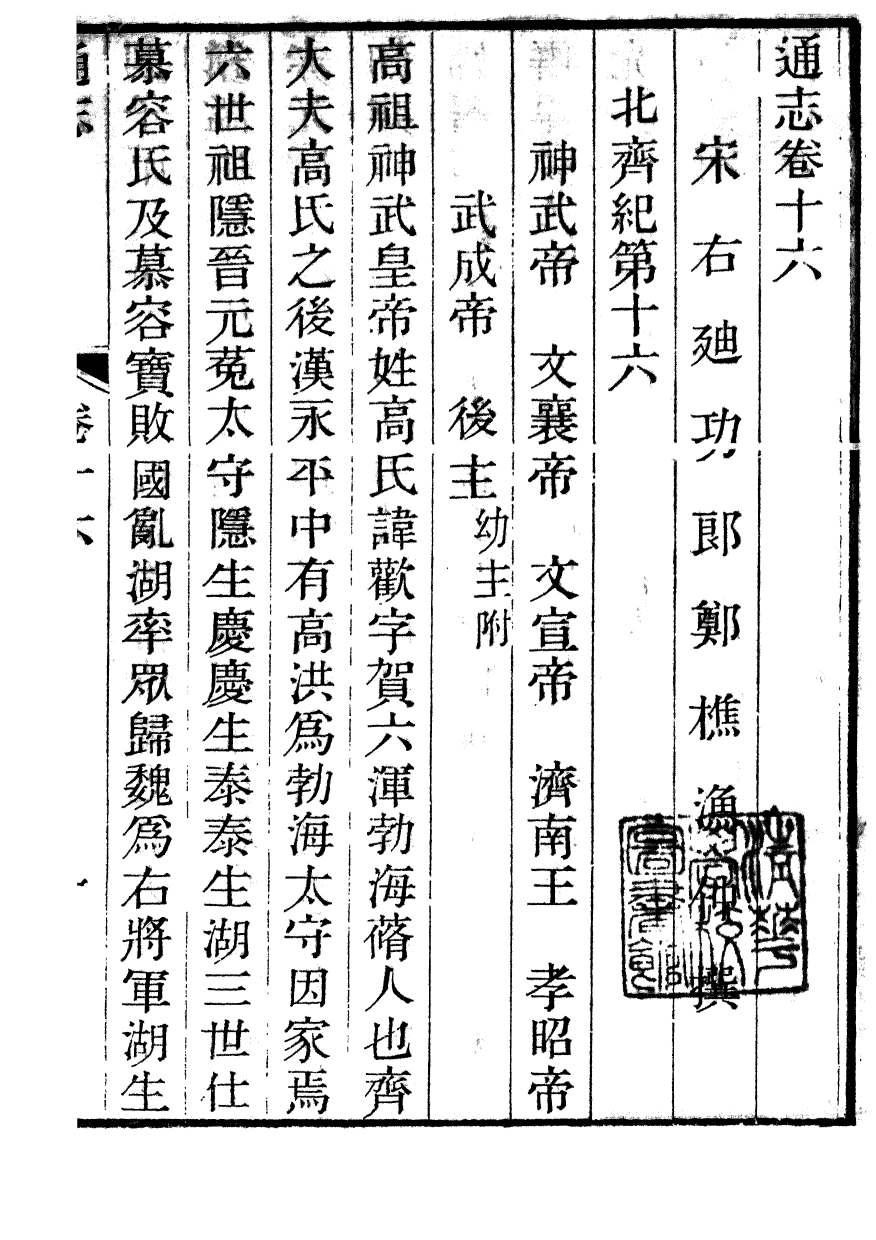 通志卷十六
宋右迪功郎鄭樵漁仲撰
北齊紀第十六
神武帝　文襄帝　文宣帝　濟南王　孝昭帝
武成帝　後主幼主附
高祖神武皇帝姓高氏諱歡字賀六渾勃海蓨人也齊
大夫高氏之後漢永平中有高洪爲勃海太守因家焉
六世祖隱晉元菟太守隱生慶慶生泰泰生湖三世仕
慕容氏及慕容寶敗國亂湖率眾歸魏爲右將軍湖生
通志　卷十六　一